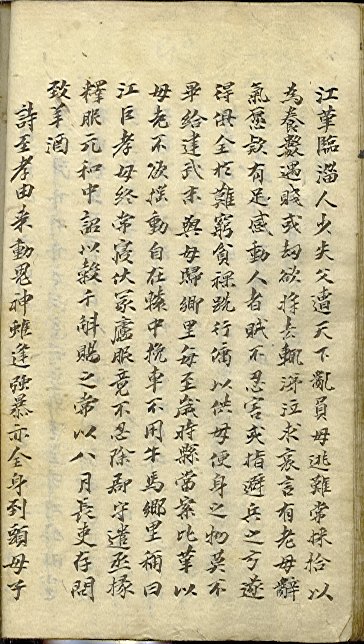 江革臨淄人少失父遭天下亂負母逃難常採拾以
為養數遇賊或劫欲將去輒涕泣求哀言有老母辭
氣愿款有足感動人者賊不忍害或指避兵之方遂
得俱全於難窮貧裸跣行傭以供母便身之物莫不
畢給建武末與母歸鄉里每至歲時縣當案比革以
母老不欲搖動自在轅中挽車不用牛馬鄉里稱曰
江巨孝母終常寢伏冢廬服竟不忍除郡守遣丞掾
釋服元和中詔以穀千斛賜之常以八月長吏存問
致羊酒
詩至孝由來動鬼神雖逢强暴亦全身到頭母子